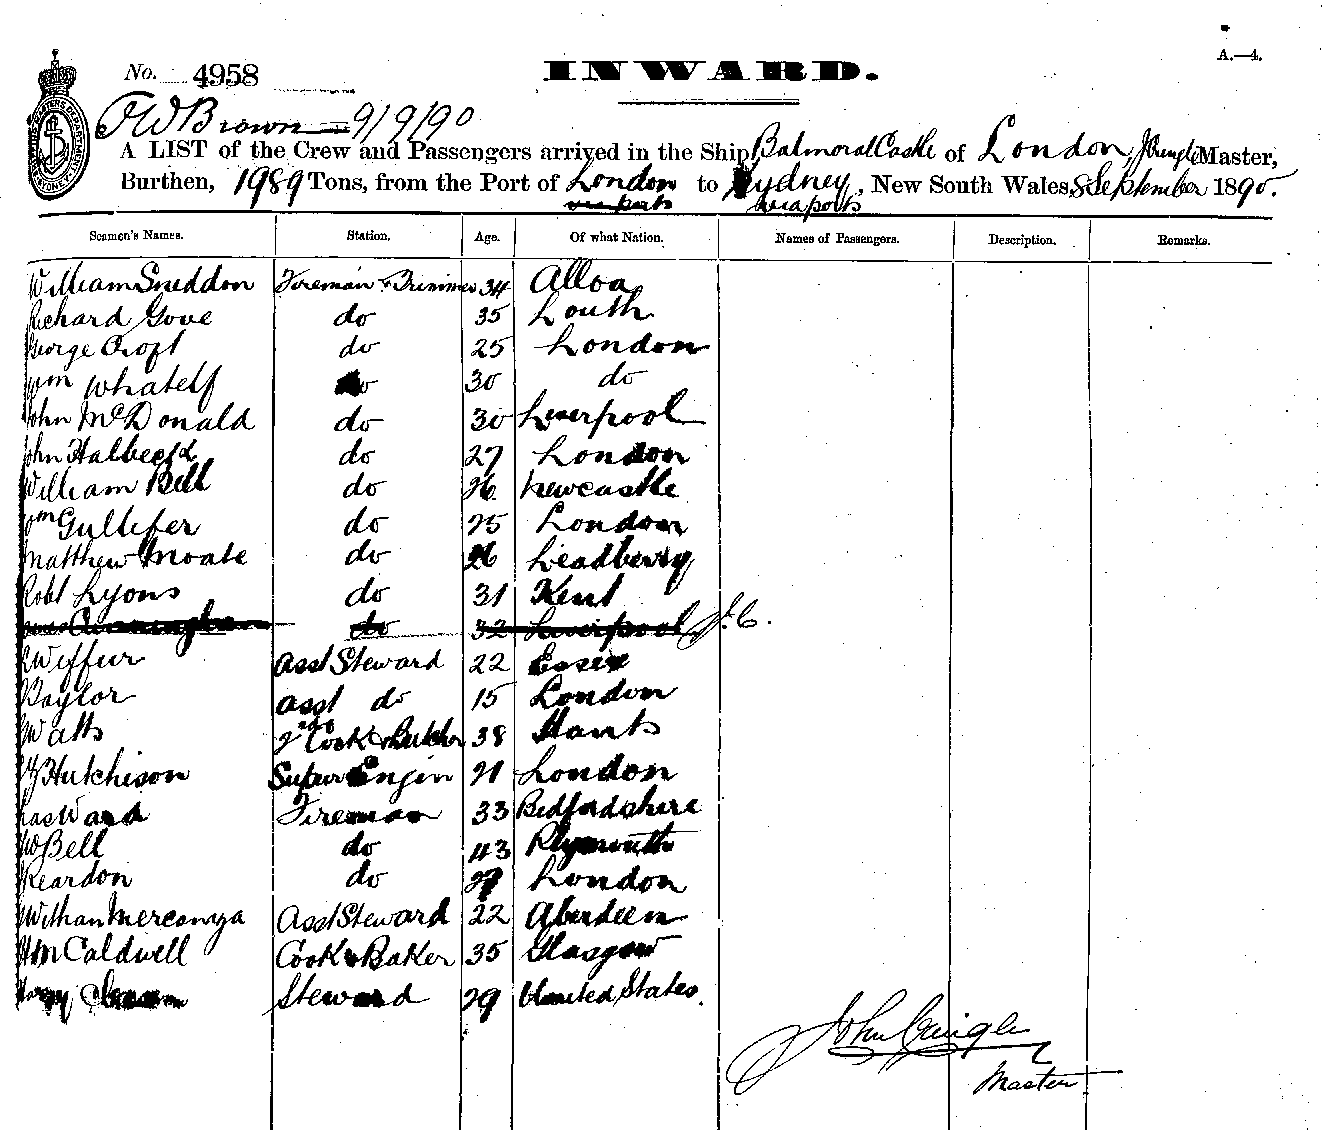 A.—4.
No. 4958 INWARD.
F W Brown 9/9/90
A LIST of the Crew and Passengers arrived in the Ship Balmoral Castle of London, J Cringle Master,
Burthen, 1989 Tons, from the Port of London to Sydney, New South Wales, 8 September 1890.
via ports via ports
Seamen's Names. Station. Age. Of what Nation. Names of Passengers. Description. Remarks.
William Sneddon Fireman & Trimmer 34 Alloa
Richard Gove do 35 Louth
George Croft do 25 London
Wm do 30 do
John McDonald do 30 Liverpool
John do 27 London
William Bell do 26 Newcastle
Wm Gullifer do 25 London
Matthew Moate do 26 Leadberry
Robt Lyons do 31 Kent
Cunningham do 32 Liverpool J. C.
Asst Steward 22 Essex
Baylor asst do 15 London
Watts 2nd Cook & Butcher 38 Hants
Hutchison Super Engin 21 London
Chas Ward Fireman 33 Bedfordshire
Bell do 43 Plymouth
Reardon do London
Asst Steward 22 Aberdeen
Caldwell Cook & Baker 35 Glasgow
Harry Steward 29 United States.
John Cringle
Master